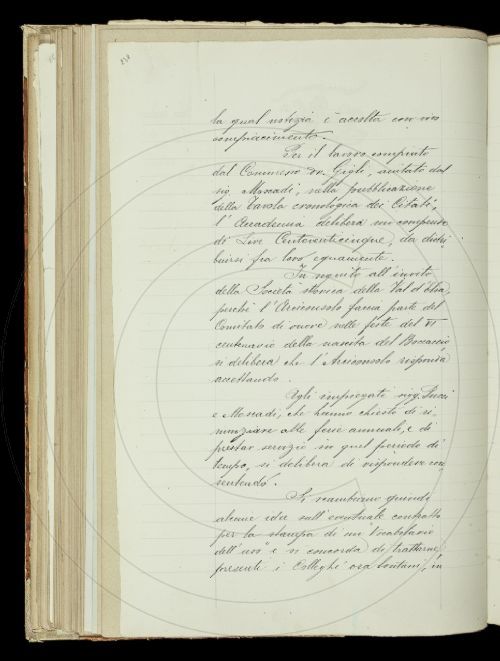 la qual notizia è accolta con vivo
compiacimento.
Per il lavoro compiuto
dal Commend. on. Gigli, aiutato dal
sig. Menadi, nella pubblicazione
della Tavola cronologica dei Citati,
l'Accademia delibera un compenso
di Lire Centoventicinque, da distri
buirsi fra loro egualmente.
In seguito all'invito
della Società storica della Val d'Elsa,
perchè l'Arciconsolo faccia parte del
Comitato di onore nelle feste del VI
centenario della nascita del Boccaccio
si delibera che l'Arciconsolo risponda
accettando.
Agli impiegati sigg.
e Menadi, che hanno chiesto di ri,
nunziare alle ferie annuali, e di
prestar servizio in quel periodo di
tempo, si delibera di rispondere con
sentendo.
Si scambiano quindi
alcune idee sull'eventuale contratto
per la stampa di un "Vocabolario
dell'uso" e si concorda di trattarne,
presenti i Colleghi ora lontani, in